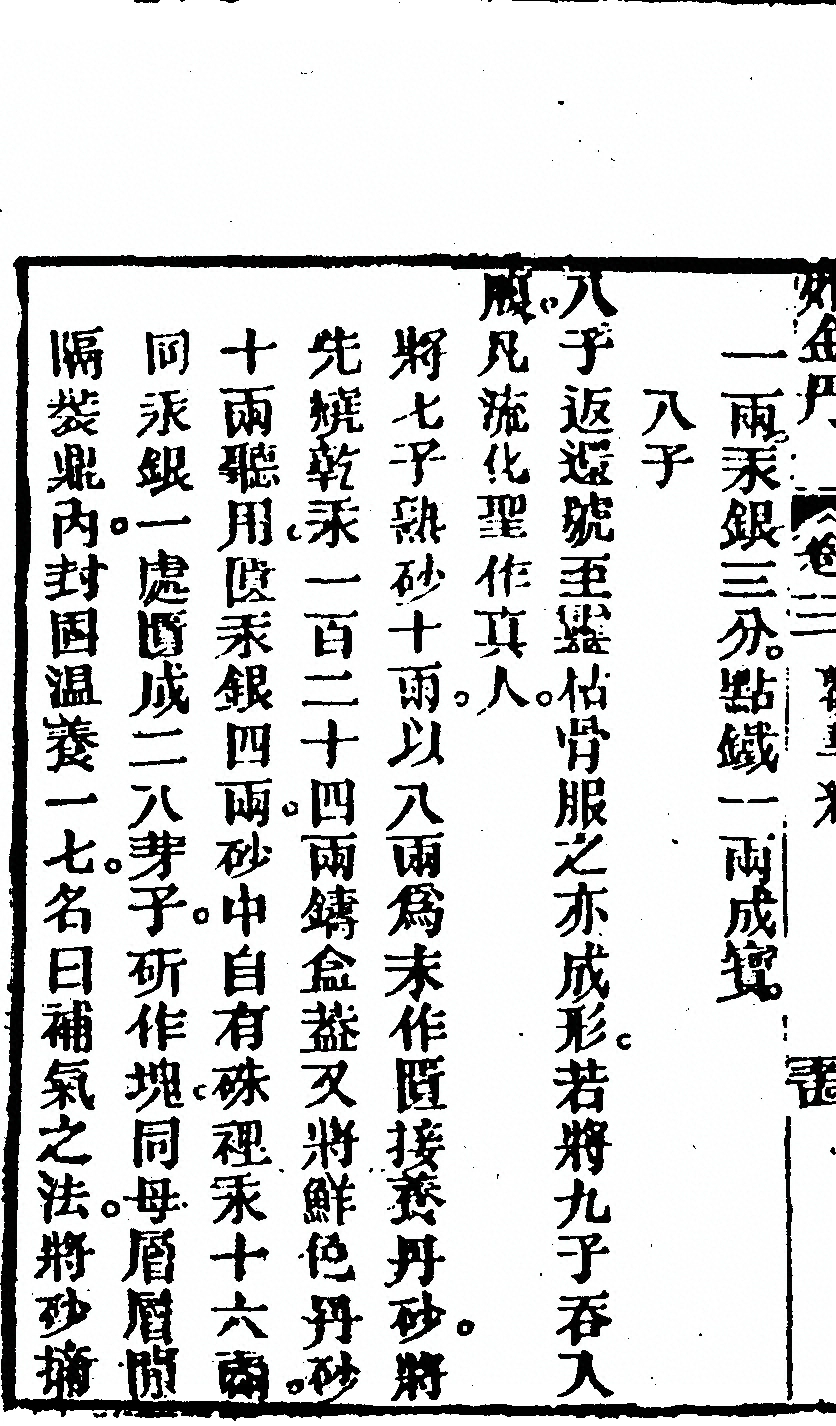 金丹 卷三
一兩汞銀三分。點鐵一兩成寶。
八子
八子返還號至靈枯骨服之亦成形。若將九子吞入
腹。凡流化聖作真人。
將七子熟砂十兩以八兩為末作匱接養丹砂。將
先燒乾汞一百二十四兩鑄盒蓋又將鮮色丹砂
十兩聽用。匱汞銀四兩。砂中自有硃裡汞十六兩。
同汞銀一處匱成二八芽子。研作塊。同母層層間
隔裝鼎內。封固溫養一七。名曰補氣之法。將砂摘